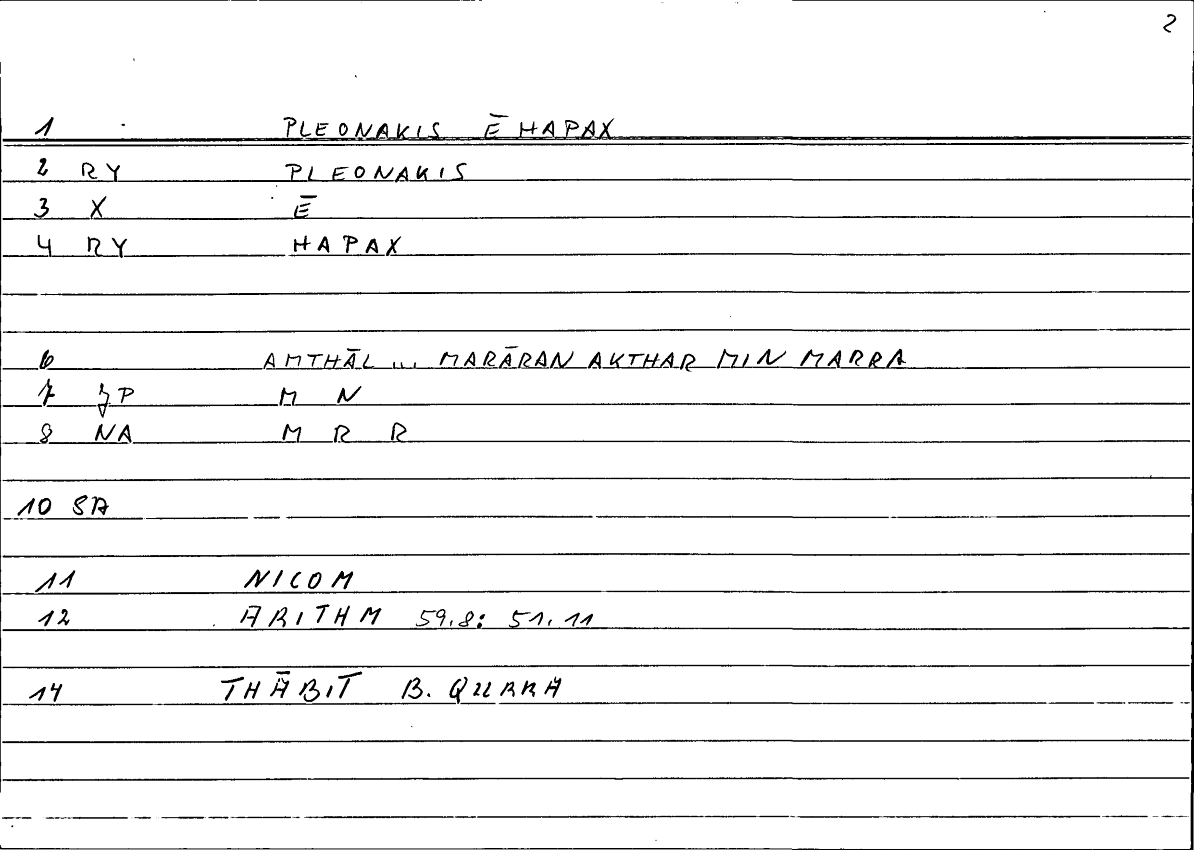 2
1 PLEONAKIS Ē HAPAX
2 RY PLEONAKIS
3 X Ē
4 RY HAPAX
6 AMTHĀL ... MARĀRAN AKTHAR MIN MARRA
7 P M N
8 NA M R R
10 SA
11 NICOM
12 ARITHM 59.8: 51.11
14 THĀBIT B. QURRA